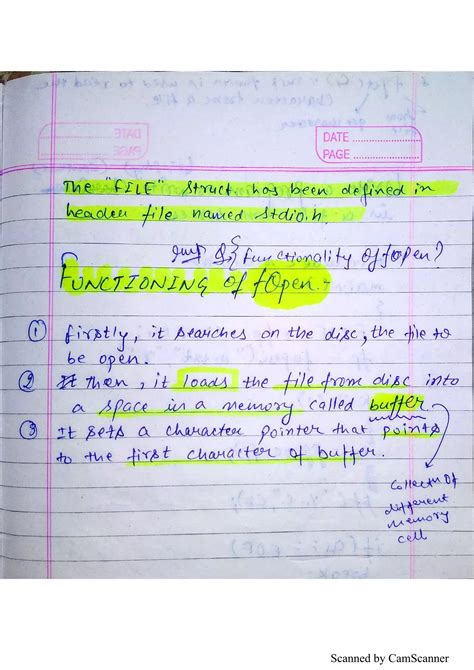 DATE
PAGE
The "FILE" struct has been defined in
header file named stdio.h.
imp Q { functionality of fopen?
FUNCTIONING of fOpen.-
① firstly, it searches on the disc, the file to
be open.
② Then, it loads the file from disc into
a space in a memory called buffer
③ It sets a character pointer that points
to the first character of buffer.
Collectn Of
different
memory
cell
Scanned by CamScanner